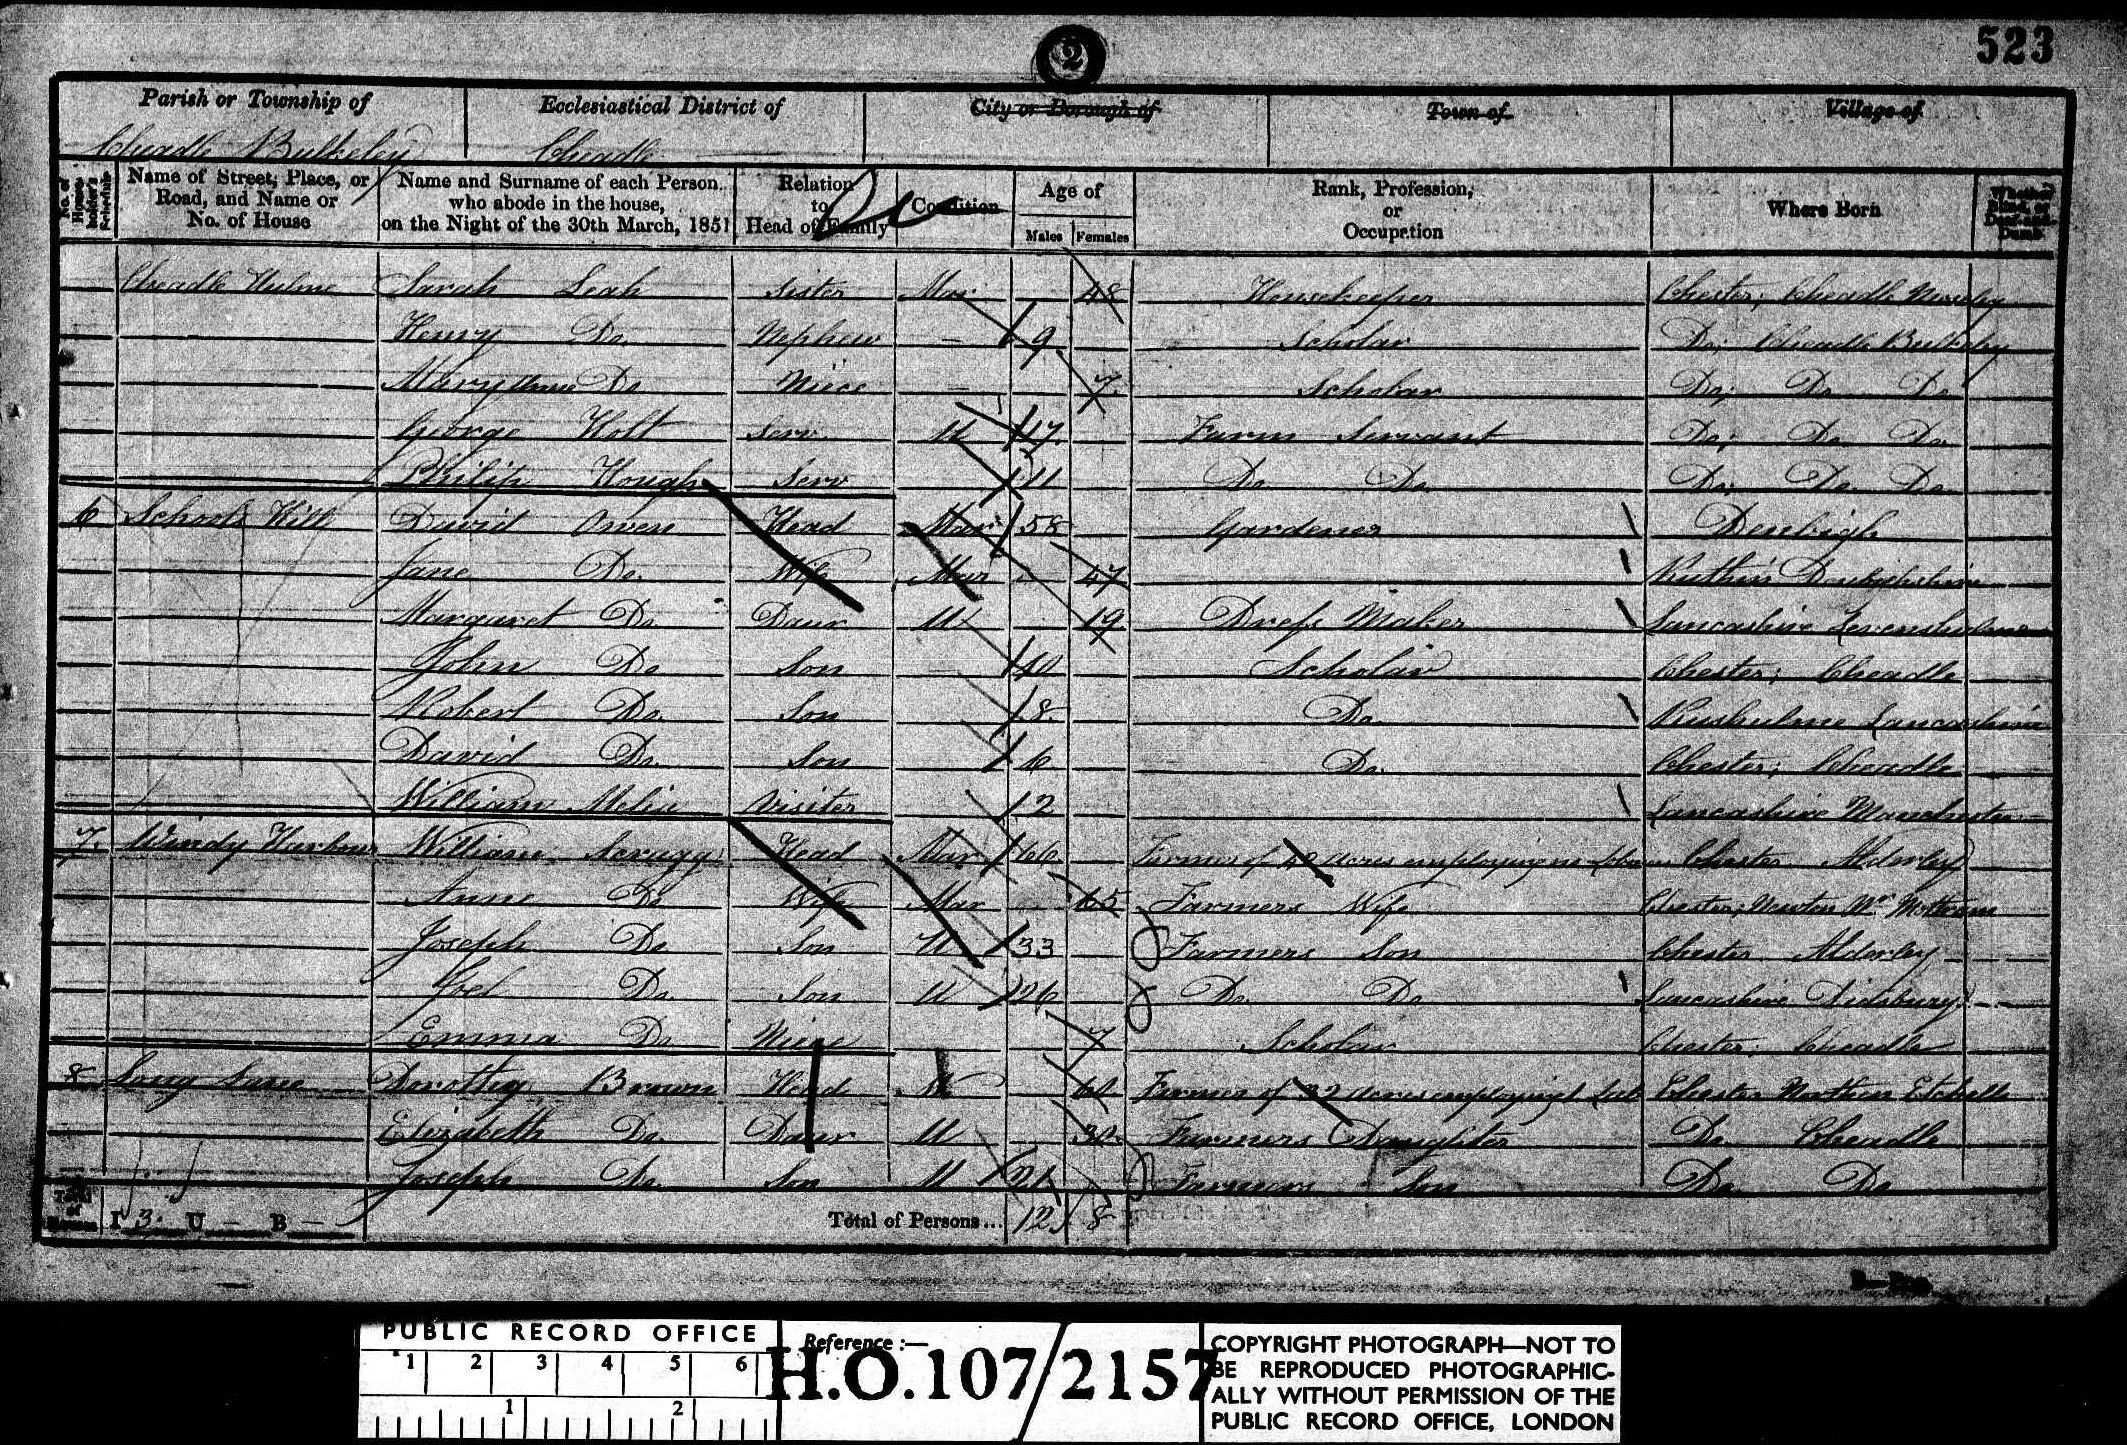 2
523
Parish or Township of Ecclesiastical District of City or Borough of Town of Village of
Cheadle Bulkeley Cheadle
No. of House-holder's Schedule Name of Street, Place, or Road, and Name or No. of House Name and Surname of each Person who abode in the house, on the Night of the 30th March, 1851 Relation to Head of Family Condition Age of Males Females Rank, Profession, or Occupation Where Born Whether Blind, or Deaf-and-Dumb
Cheadle Hulme Sarah Leah Sister Mar 48 Housekeeper Chester, Cheadle Moseley
Henry Do. Nephew - 9 Scholar Do; Cheadle Bulkeley
Mary Anne Do Niece - 7 Scholar Do; Do Do
George Holt Serv. U 17 Farm Servant Do; Do Do.
Philip Hough Serv 11 Do Do. Do; Do. Do
6 Schools Hill David Owen Head Mar 58 Gardener Denbigh
Jane Do. Wife Mar 47 Ruthin Denbighshire
Margaret Do Daur U 19 Dress Maker Lancashire Levenshulme
John Do Son - 10 Scholar Chester; Cheadle
Robert Do. Son 8 Do. Rusholme Lancashire
David Do. Son 6 Do. Chester; Cheadle
William Visiter 2 Lancashire Manchester
7. Windy Harbour William Scragg Head Mar 66 Farmer of 42 acres employing Chester Alderley
Anne Do Wife Mar 65 Farmers Wife Chester; Newton Nr. Mottram
Joseph Do Son U 33 Farmers Son Chester Alderley
Joel Do. Son U 26 Do. Do Lancashire Didsbury
Emma Do Niece 7 Scholar Chester, Cheadle
8 Long Lane Dorothy Brown Head 60 Farmer of 32 acres employing 1 Lab Chester Northen Etchells
Elizabeth Do. Daur U 30 Farmers Daughter Do Cheadle
Joseph Do. Son U 21 Farmers Son Do Do
Total of Houses I 3. U - B - Total of Persons... 12 8
PUBLIC RECORD OFFICE
1 2 3 4 5 6
1 2
Reference :-
H.O.107/2157
COPYRIGHT PHOTOGRAPH—NOT TO
BE REPRODUCED PHOTOGRAPHIC-
ALLY WITHOUT PERMISSION OF THE
PUBLIC RECORD OFFICE, LONDON